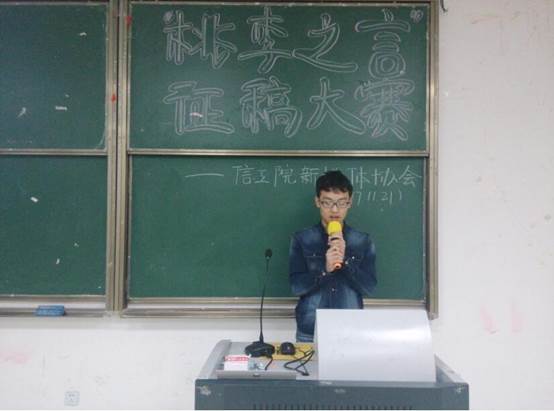 “桃李之言”
征稿大赛
——信工院新 体协会
11 21)